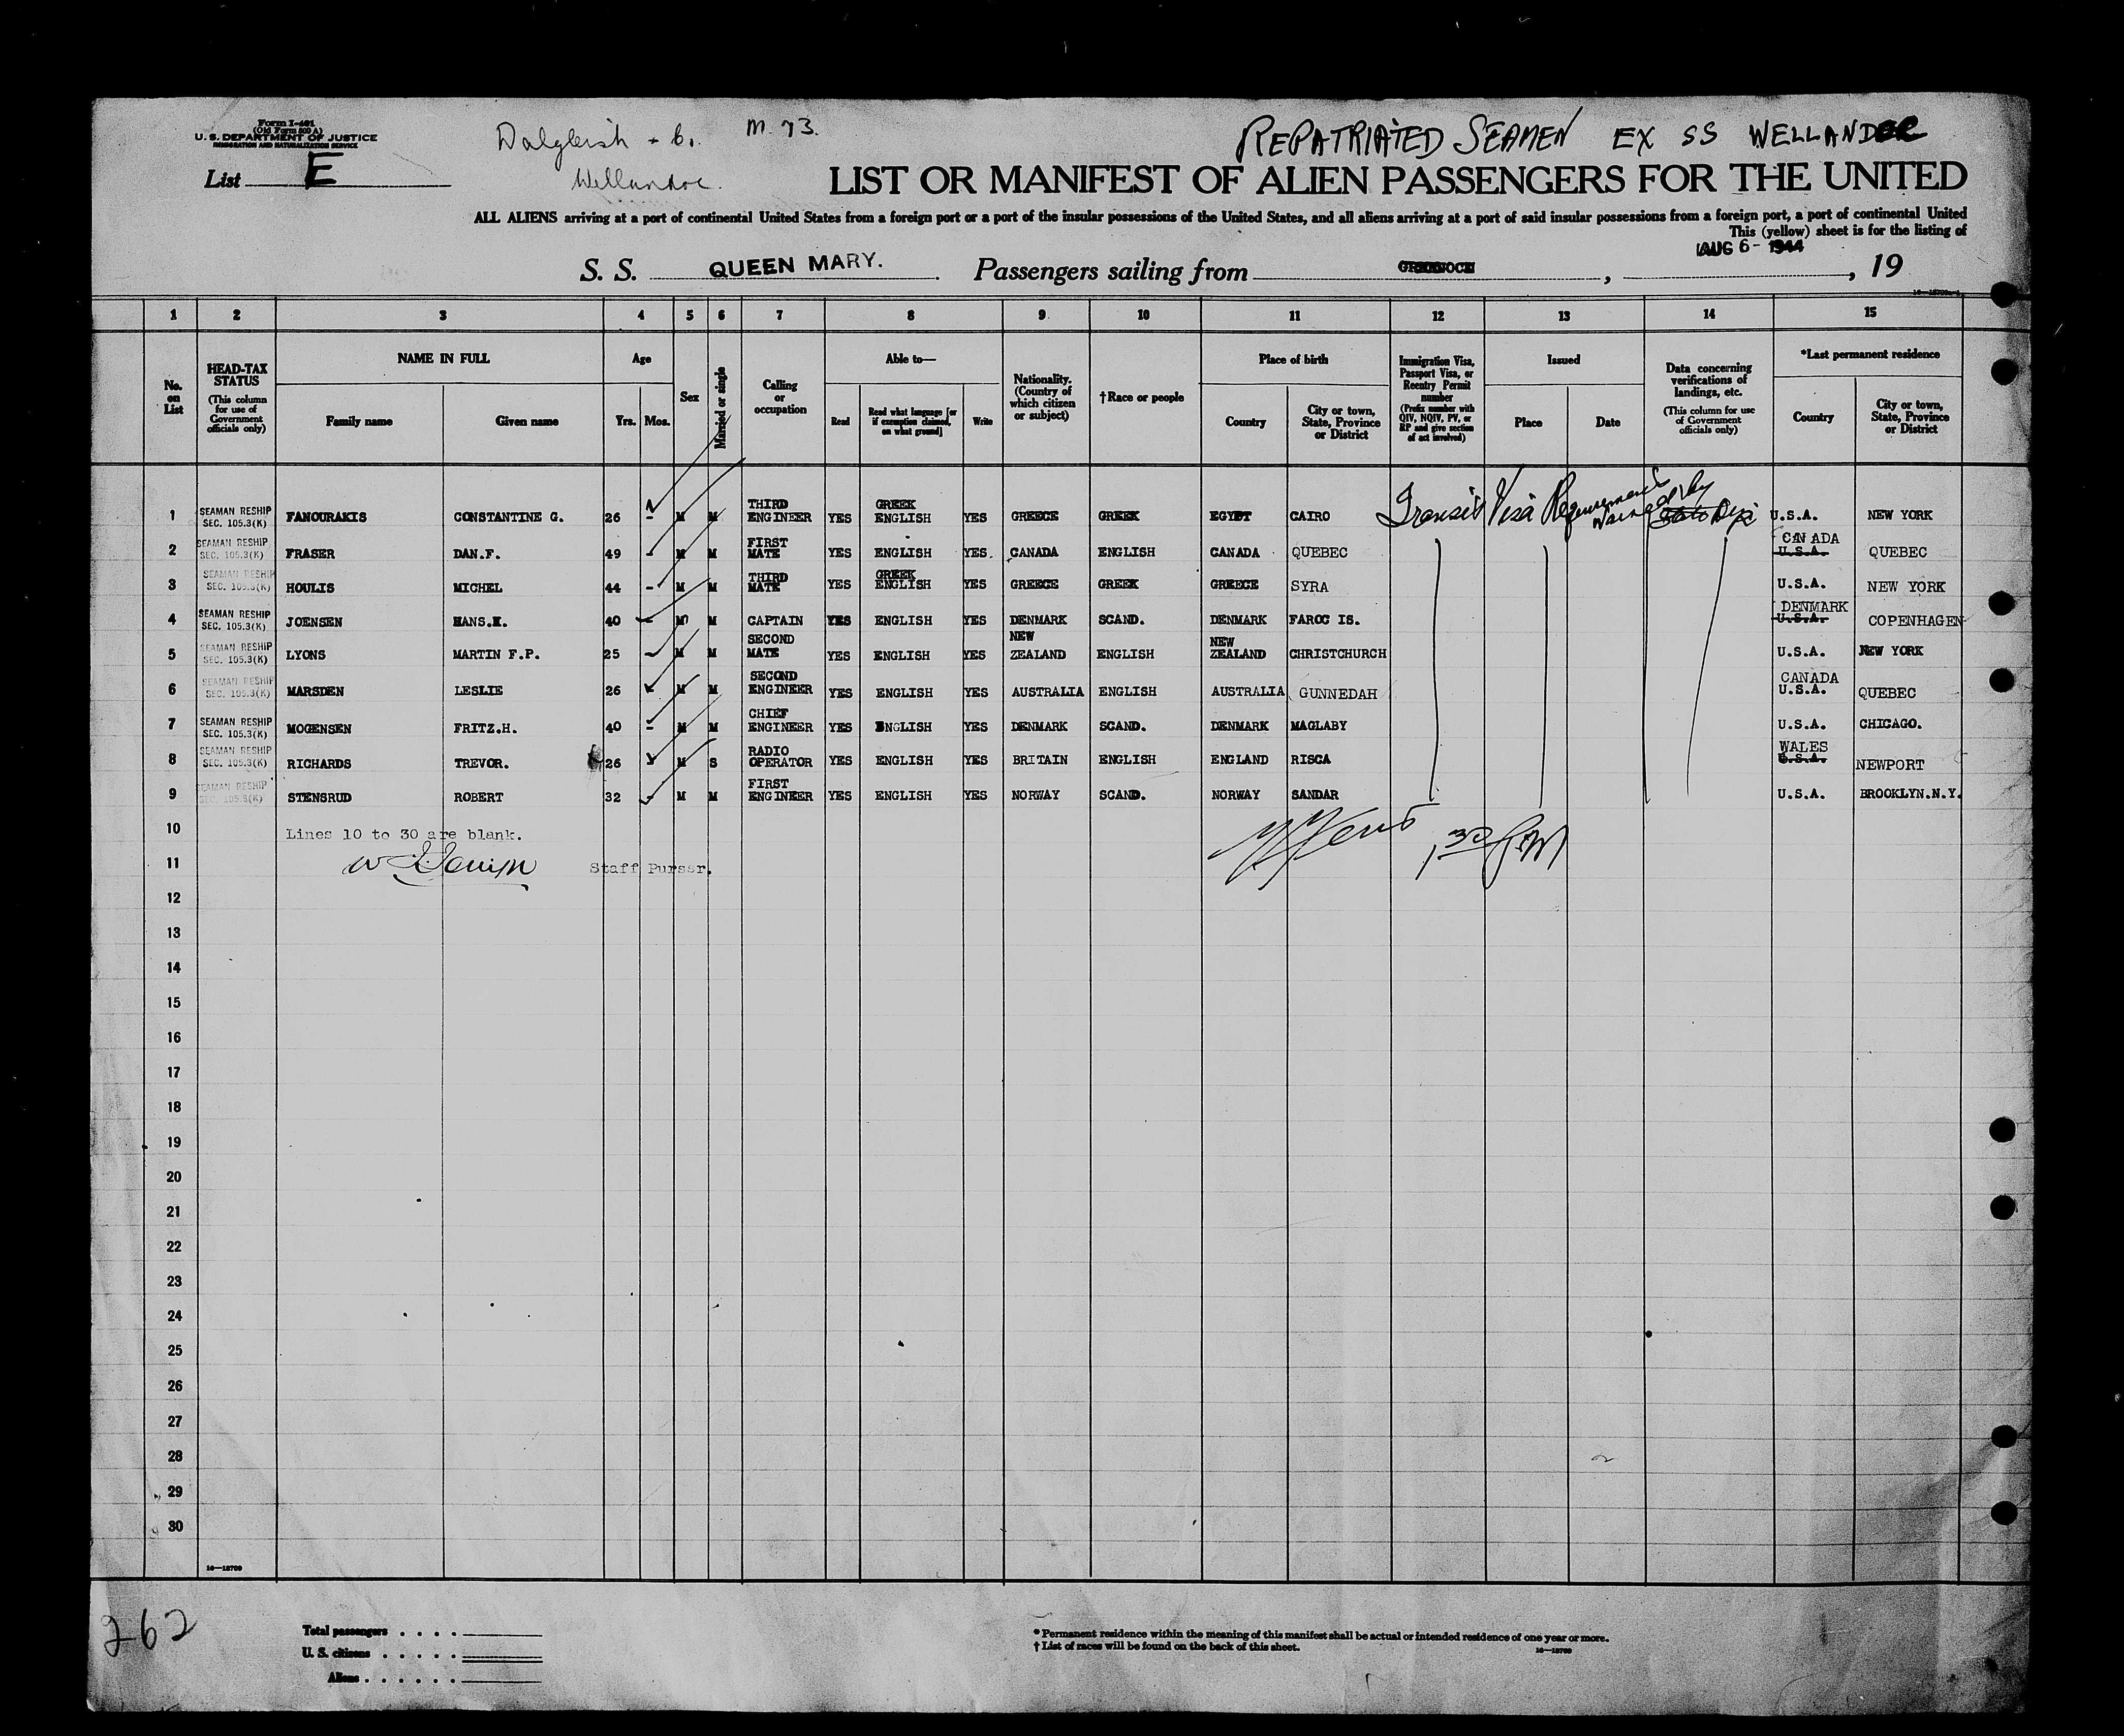 Form I-401
(Old Form 500 A)
U. S. DEPARTMENT OF JUSTICE
IMMIGRATION AND NATURALIZATION SERVICE
List E
Dalgleish & Co. M. 73.
REPATRIATED SEAMEN EX SS WELLANDOC
LIST OR MANIFEST OF ALIEN PASSENGERS FOR THE UNITED
ALL ALIENS arriving at a port of continental United States from a foreign port or a port of the insular possessions of the United States, and all aliens arriving at a port of said insular possessions from a foreign port, a port of continental United
This (yellow) sheet is for the listing of
S. S. QUEEN MARY. Passengers sailing from GREENOCK , AUG 6 - 1944 , 19
1 2 3 4 5 6 7 8 9 10 11 12 13 14 15
No. on List
HEAD-TAX STATUS (This column for use of Government officials only)
NAME IN FULL Family name Given name
Age Yrs. Mos.
Sex
Married or single
Calling or occupation
Able to— Read Read what language [or if exemption claimed, on what ground] Write
Nationality. (Country of which citizen or subject)
†Race or people
Place of birth Country City or town, State, Province or District
Immigration Visa, Passport Visa, or Reentry Permit number (Prefix number with QIV, NQIV, PV, or RP and give section of act involved)
Issued Place Date
Data concerning verifications of landings, etc. (This column for use of Government officials only)
*Last permanent residence Country City or town, State, Province or District
Transit Visa Requirements waived by State Dept
1 SEAMAN RESHIP SEC. 105.3(K) FANOURAKIS CONSTANTINE G. 26 - M M THIRD ENGINEER YES GREEK ENGLISH YES GREECE GREEK EGYPT CAIRO U.S.A. NEW YORK
2 SEAMAN RESHIP SEC. 105.3(K) FRASER DAN.F. 49 - M M FIRST MATE YES ENGLISH YES. CANADA ENGLISH CANADA QUEBEC CANADA U.S.A. QUEBEC
3 SEAMAN RESHIP SEC. 105.3(K) HOULIS MICHEL 44 - M M THIRD MATE YES GREEK ENGLISH YES GREECE GREEK GREECE SYRA U.S.A. NEW YORK
4 SEAMAN RESHIP SEC. 105.3(K) JOENSEN HANS.K. 40 - M M CAPTAIN YES ENGLISH YES DENMARK SCAND. DENMARK FAROC IS. DENMARK U.S.A. COPENHAGEN
5 SEAMAN RESHIP SEC. 105.3(K) LYONS MARTIN F.P. 25 - M M SECOND MATE YES ENGLISH YES NEW ZEALAND ENGLISH NEW ZEALAND CHRISTCHURCH U.S.A. NEW YORK
6 SEAMAN RESHIP SEC. 105.3(K) MARSDEN LESLIE 26 - M M SECOND ENGINEER YES ENGLISH YES AUSTRALIA ENGLISH AUSTRALIA GUNNEDAH CANADA U.S.A. QUEBEC
7 SEAMAN RESHIP SEC. 105.3(K) MOGENSEN FRITZ.H. 40 - M M CHIEF ENGINEER YES ENGLISH YES DENMARK SCAND. DENMARK MAGLABY U.S.A. CHICAGO.
8 SEAMAN RESHIP SEC. 105.3(K) RICHARDS TREVOR. 26 - M S RADIO OPERATOR YES ENGLISH YES BRITAIN ENGLISH ENGLAND RISCA WALES U.S.A. NEWPORT
9 SEAMAN RESHIP SEC. 105.3(K) STENSRUD ROBERT 32 - M M FIRST ENGINEER YES ENGLISH YES NORWAY SCAND. NORWAY SANDAR U.S.A. BROOKLYN.N.Y.
10 Lines 10 to 30 are blank.
11 Staff Purser.
12
13
14
15
16
17
18
19
20
21
22
23
24
25
26
27
28
29
30
16—13760
262
Total passengers
U. S. citizens
Aliens
* Permanent residence within the meaning of this manifest shall be actual or intended residence of one year or more.
† List of races will be found on the back of this sheet.